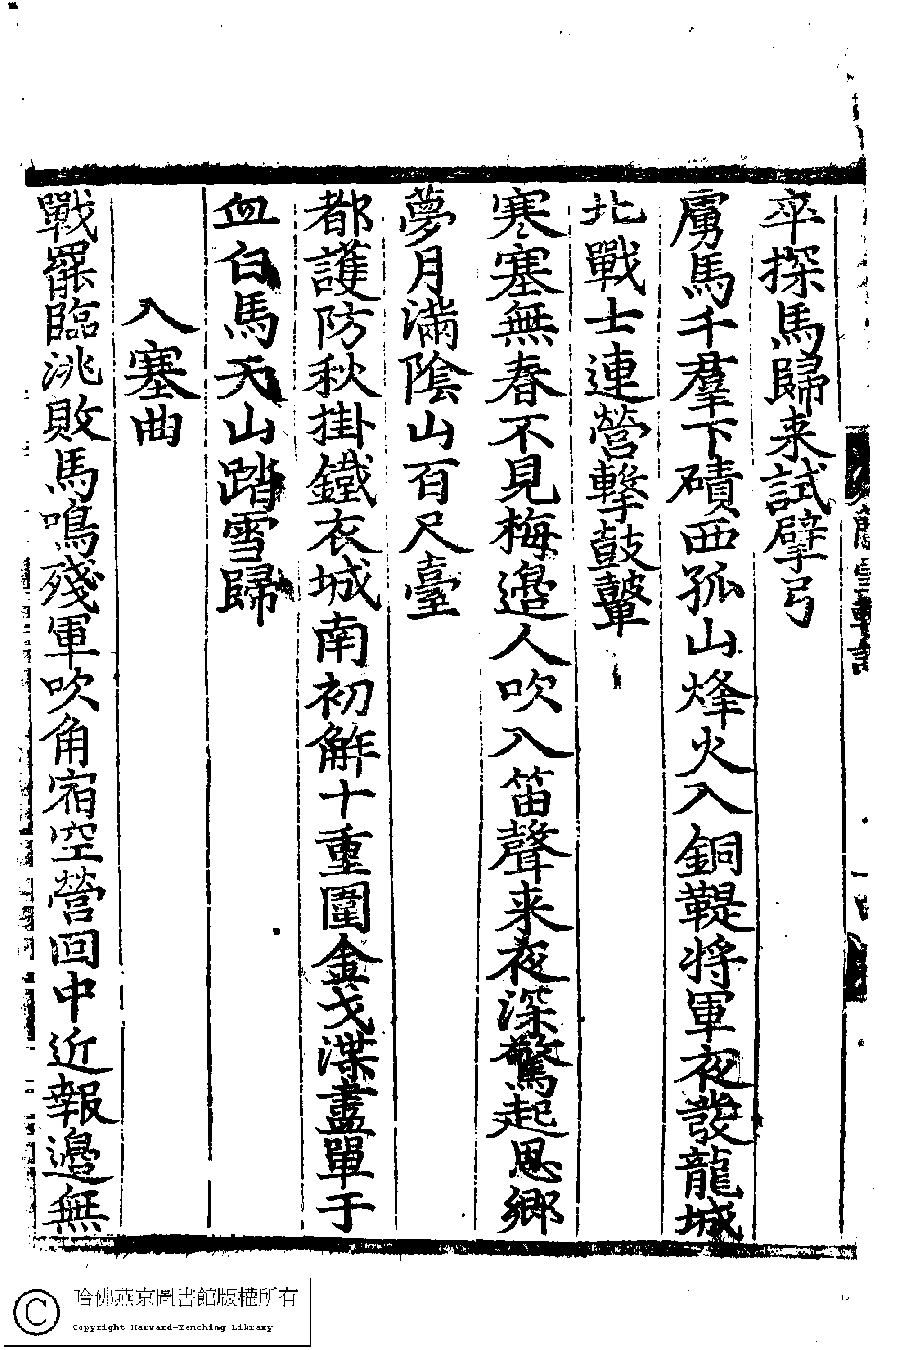 卒探馬歸来試擘弓
虜馬千羣下磧西孤山烽火入銅鞮將軍夜發龍城
北戰士連營擊鼓鼙
寒塞無春不見梅邉人吹入笛聲来夜深驚起思鄉
夢月滿陰山百尺臺
都護防秋掛鐵衣城南初解十重圍金戈渫盡單于
血白馬天山踏雪歸
入塞曲
戰罷臨洮敗馬鳴殘軍吹角宿空營回中近報邉無
哈佛燕京圖書館版權所有
Copyright Harvard-Yenching Library